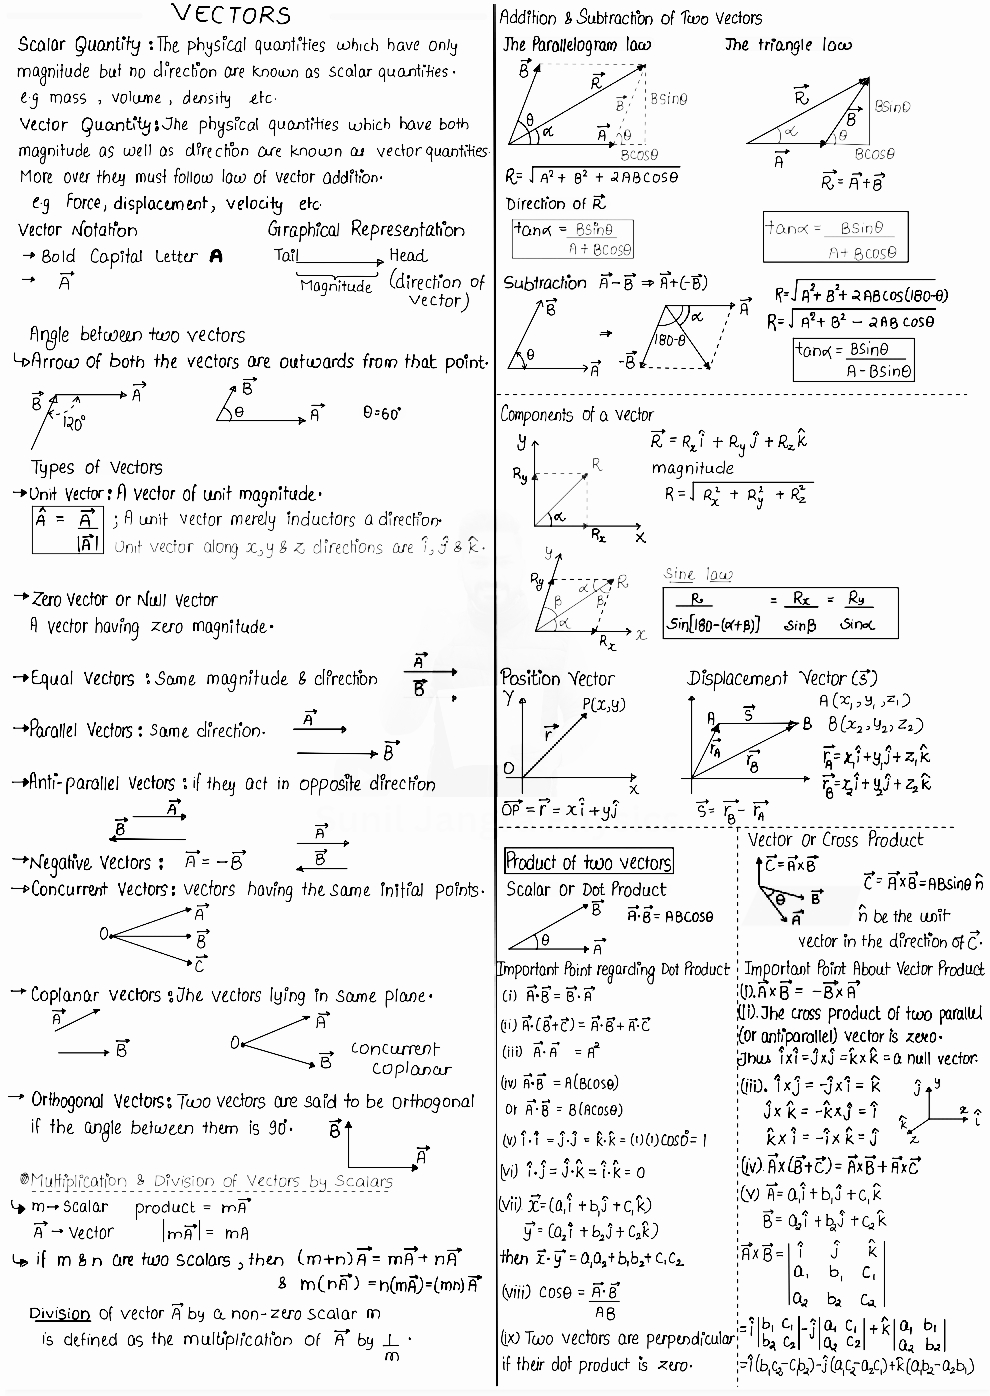 VECTORS
Scalar Quantity : The physical quantities which have only
magnitude but no direction are known as scalar quantities.
e.g mass , volume , density etc.
Vector Quantity: The physical quantities which have both
magnitude as well as direction are known as vector quantities.
More over they must follow law of vector addition.
e.g Force, displacement, velocity etc.
Vector Notation
Graphical Representation
→ Bold Capital Letter A
Tail Head
→ A⃗
Magnitude (direction of
vector)
Angle between two vectors
↳Arrow of both the vectors are outwards from that point.
B⃗ A⃗ 120°
B⃗ θ A⃗ θ=60°
Types of Vectors
→Unit Vector: A vector of unit magnitude.
Â = A⃗/|A⃗| ; A unit vector merely inductors a direction.
Unit vector along x,y & z directions are î, ĵ & k̂.
→Zero Vector or Null Vector
A vector having zero magnitude.
→Equal Vectors : Same magnitude & direction A⃗ B⃗
→Parallel Vectors : Same direction. A⃗ B⃗
→Anti-parallel Vectors : if they act in opposite direction
A⃗ B⃗
A⃗ B⃗
→Negative Vectors : A⃗ = -B⃗
→Concurrent Vectors: vectors having the same initial points.
O A⃗ B⃗ C⃗
→ Coplanar vectors : The vectors lying in same plane.
A⃗ B⃗
O A⃗ B⃗ concurrent
coplanar
→ Orthogonal Vectors: Two vectors are said to be orthogonal
if the angle between them is 90°. B⃗ A⃗
Multiplication & Division of Vectors by Scalars
↳ m→Scalar product = mA⃗
A⃗ → Vector |mA⃗| = mA
↳ if m & n are two scalars , then (m+n)A⃗ = mA⃗ + nA⃗
& m(nA⃗) = n(mA⃗)=(mn)A⃗
Division of vector A⃗ by a non-zero scalar m
is defined as the multiplication of A⃗ by 1/m .
Addition & Subtraction of Two Vectors
The Parallelogram law
The triangle law
B⃗ R⃗ B⃗ BSinθ θ α A⃗ θ BCosθ
R⃗ B⃗ BSinθ α θ A⃗ BCosθ
R=√A²+ B² + 2ABCOSθ
R⃗ = A⃗+B⃗
Direction of R⃗
tanα = BSinθ/A+BCOSθ
tanα = BSinθ/A+BCOSθ
Subtraction A⃗-B⃗ ⇒ A⃗+(-B⃗)
B⃗ θ A⃗ ⇒ A⃗ α 180-θ -B⃗
R=√A²+B²+2ABCOS(180-θ)
R=√A²+ B² − 2ABCOSθ
tanα = BSinθ/A-BSinθ
Components of a vector
y Ry R α Rx x
R⃗ = Rxî + Ryĵ + Rzk̂
magnitude
R=√Rx² + Ry² + Rz²
y Ry α R β β α Rx x
Sine law
R/Sin[180-(α+β)] = Rx/Sinβ = Ry/Sinα
Position Vector
Y P(x,y) r⃗ O x
OP⃗ = r⃗ = xî+yĵ
Displacement Vector (S⃗)
A S⃗ B r⃗A r⃗B
A(x₁,y₁,z₁)
B(x₂,y₂,z₂)
r⃗A=x₁î+y₁ĵ+z₁k̂
r⃗B=x₂î+y₂ĵ+z₂k̂
S⃗ = r⃗B - r⃗A
Product of two vectors
Scalar or Dot Product
B⃗ θ A⃗ A⃗·B⃗= ABCOSθ
Important Point regarding Dot Product
(i) A⃗·B⃗ = B⃗·A⃗
(ii) A⃗·(B⃗+C⃗) = A⃗·B⃗+A⃗·C⃗
(iii) A⃗·A⃗ = A²
(iv) A⃗·B⃗ = A(BCOSθ)
or A⃗·B⃗ = B(ACOSθ)
(v) î·î = ĵ·ĵ = k̂·k̂ = (1)(1)COS0° = 1
(vi) î·ĵ = ĵ·k̂ = î·k̂ = 0
(vii) x⃗=(a₁î +b₁ĵ +c₁k̂)
y⃗ =(a₂î +b₂ĵ +c₂k̂)
then x⃗·y⃗ = a₁a₂+b₁b₂+c₁c₂
(viii) COSθ = A⃗·B⃗/AB
(ix) Two vectors are perpendicular
if their dot product is zero.
Vector or Cross Product
C⃗=A⃗xB⃗ θ B⃗ A⃗
C⃗= A⃗xB⃗=ABsinθ n̂
n̂ be the unit
vector in the direction of C⃗.
Important Point About Vector Product
(i). A⃗xB⃗ = -B⃗xA⃗
(ii). The cross product of two parallel
(or antiparallel) vector is zero.
Thus îxî=ĵxĵ=k̂xk̂=a null vector.
(iii). îxĵ = -ĵxî = k̂
ĵxk̂ = -k̂xĵ = î
k̂xî = -îxk̂ = ĵ
ĵ y z î k̂ z
(iv). A⃗x(B⃗+C⃗) = A⃗xB⃗+A⃗xC⃗
(v) A⃗=a₁î+b₁ĵ+c₁k̂
B⃗=a₂î+b₂ĵ+c₂k̂
A⃗xB⃗ = |î ĵ k̂|
a₁ b₁ c₁
a₂ b₂ c₂
=î|b₁ c₁ b₂ c₂|-ĵ|a₁ c₁ a₂ c₂|+k̂|a₁ b₁ a₂ b₂|
=î(b₁c₂-c₁b₂)-ĵ(a₁c₂-a₂c₁)+k̂(a₁b₂-a₂b₁)